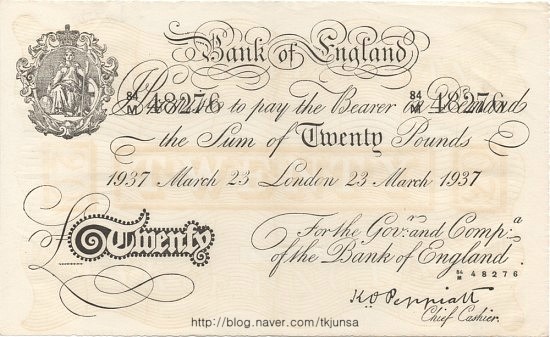 Bank of England
84
M 48276 84
M 48276
I Promise to pay the Bearer on Demand
the Sum of Twenty Pounds
1937 March 23 London 23 March 1937
For the Govr. and Compa.
of the Bank of England
£ Twenty
84
M 48276
K O Peppiatt
Chief Cashier.
http://blog.naver.com/tkjunsa